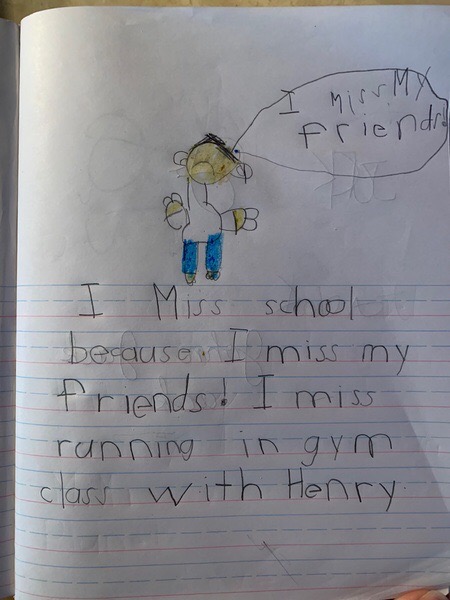 I Miss My
friends!
I Miss school
because I miss my
friends! I miss
running in gym
class with Henry